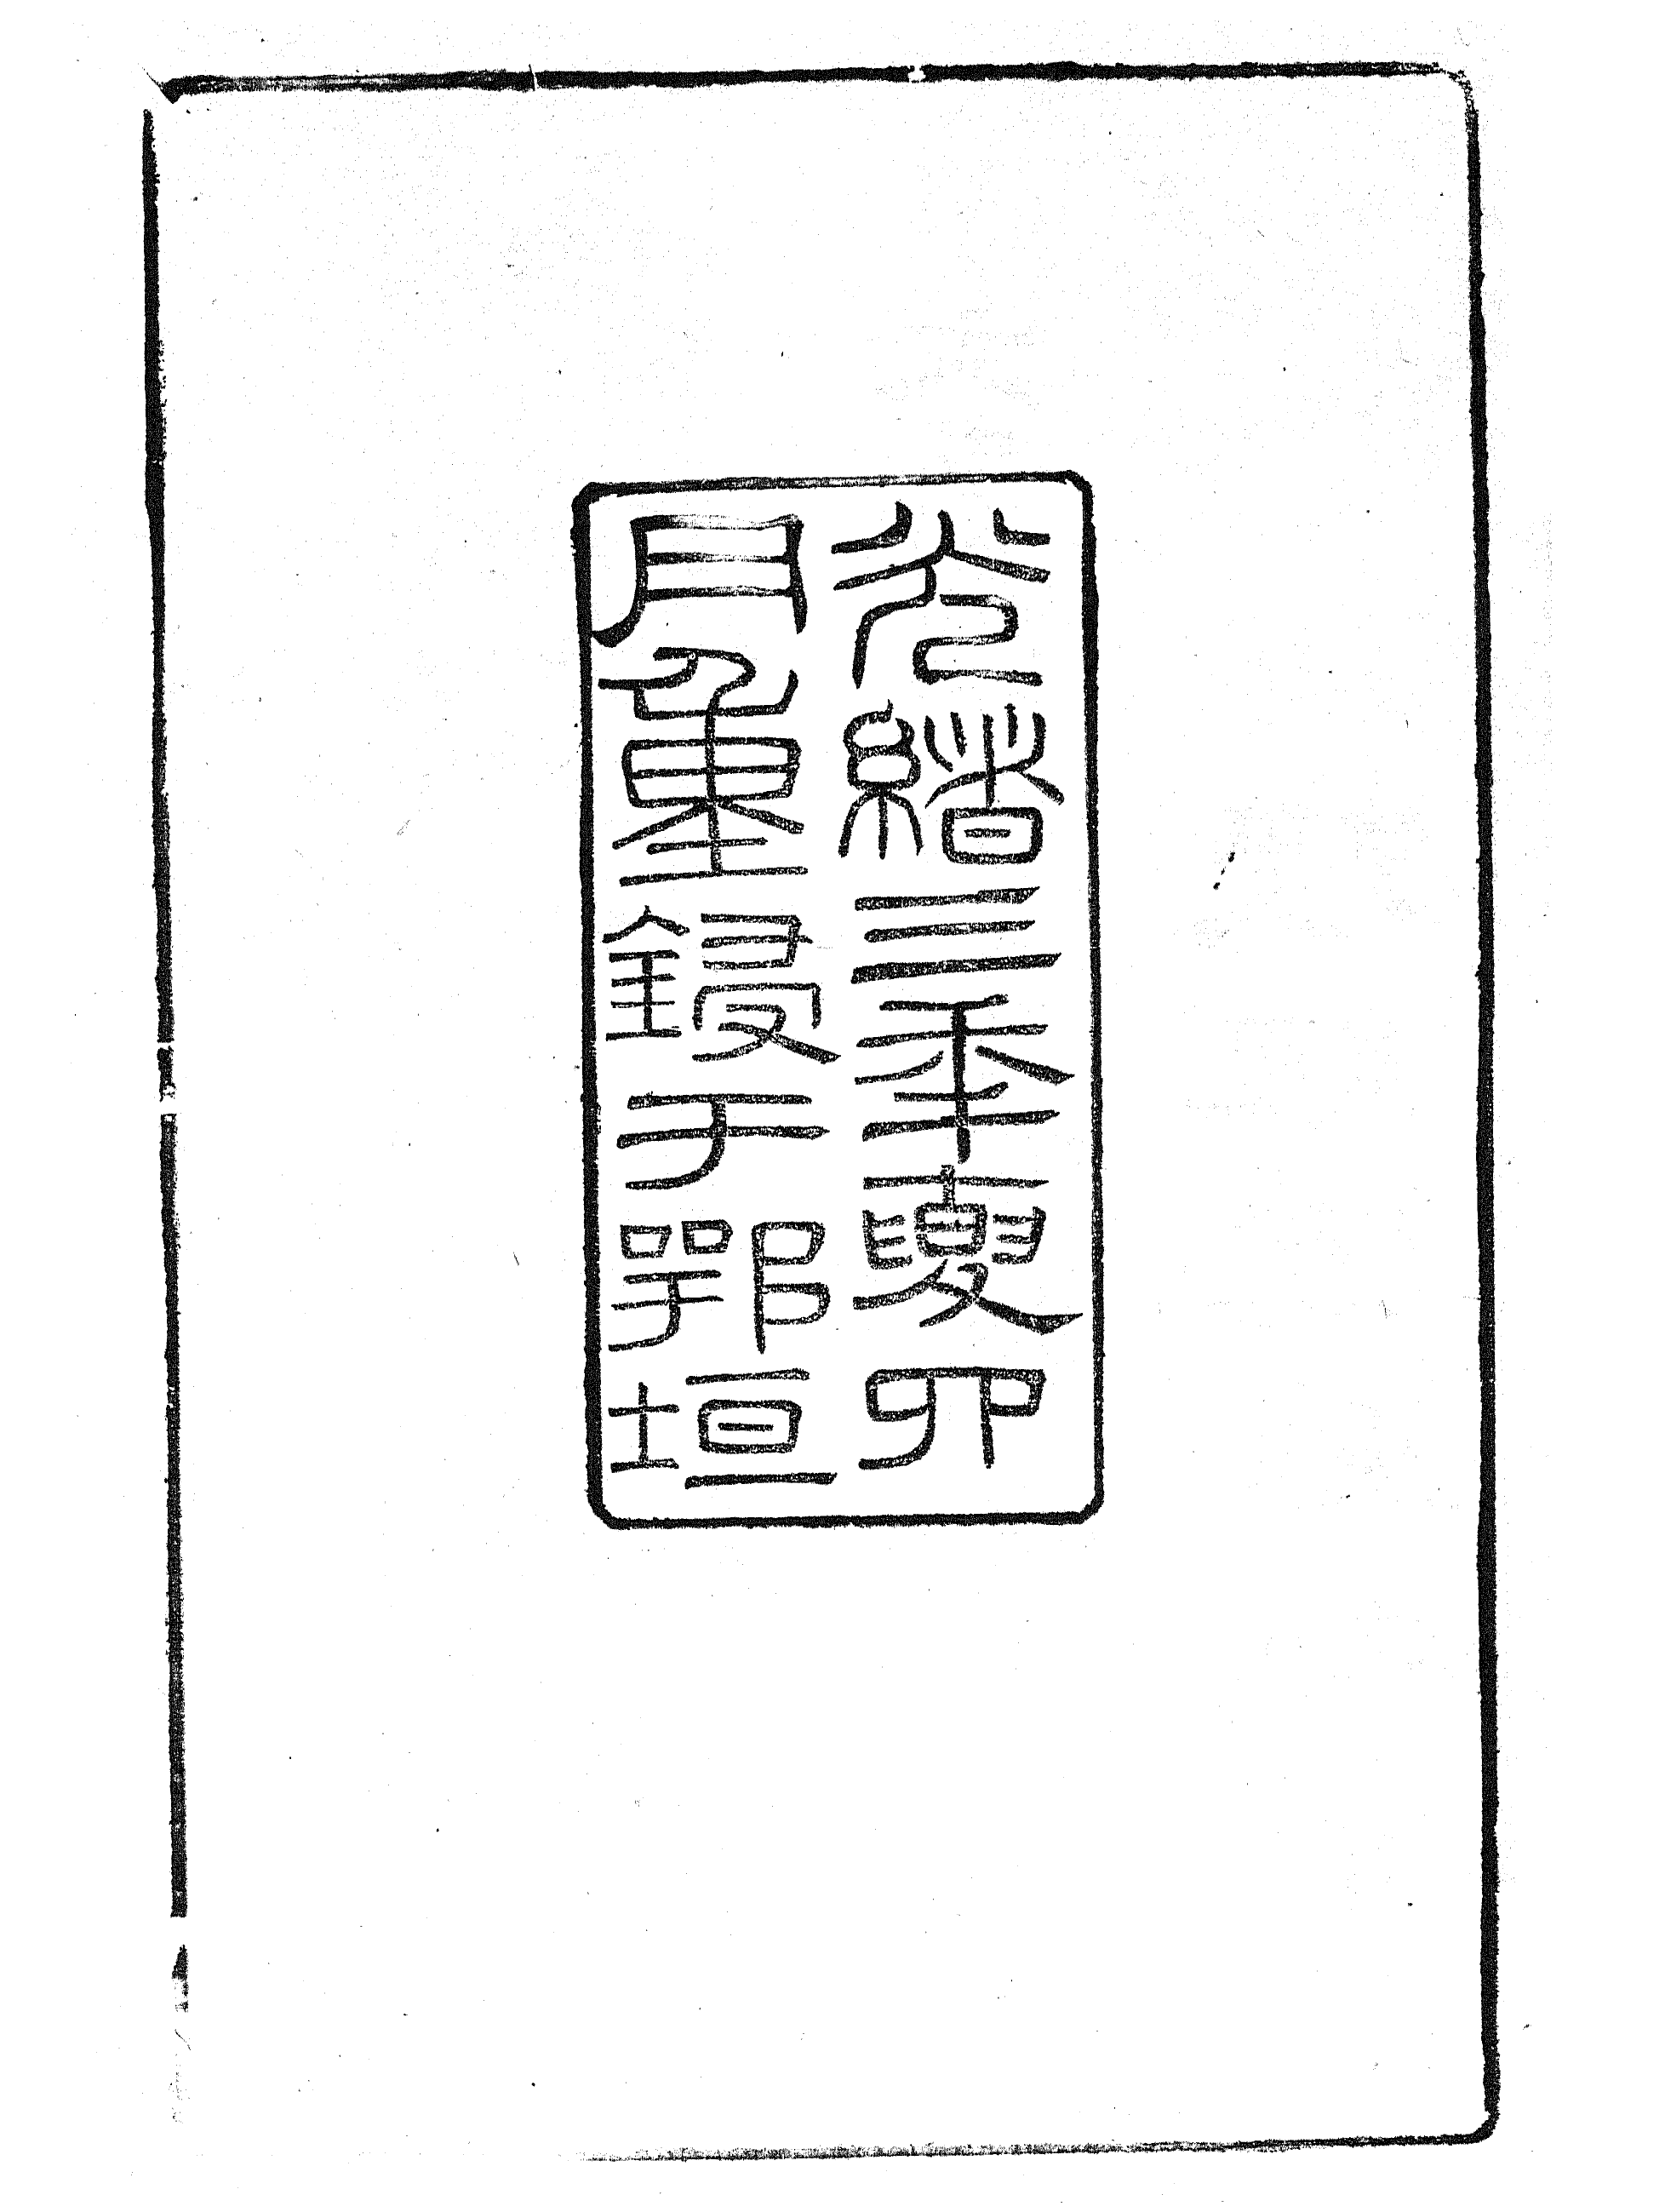 光緒三年夏四
月重鋟于鄂垣